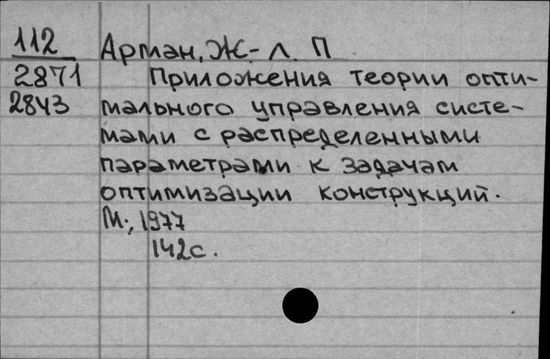 112 Арман, Ж.-Л. П
2871 Приложения теории опти-
2843 мального управления систе-
мами с распределенными
параметрами к задачам
оптимизации конструкций.
М., 1977
142с.